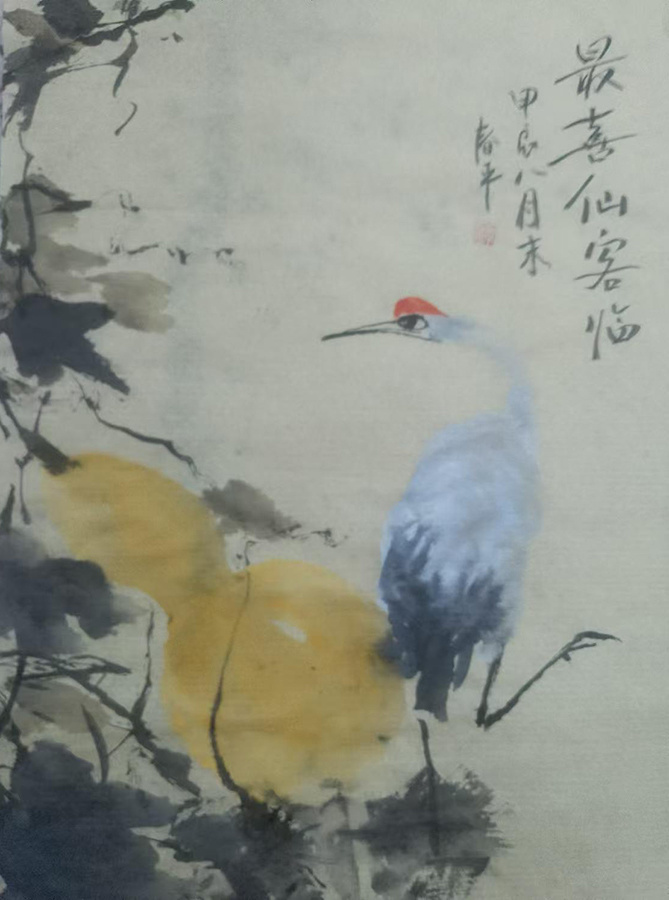 最喜仙客临
甲辰八月末
春平